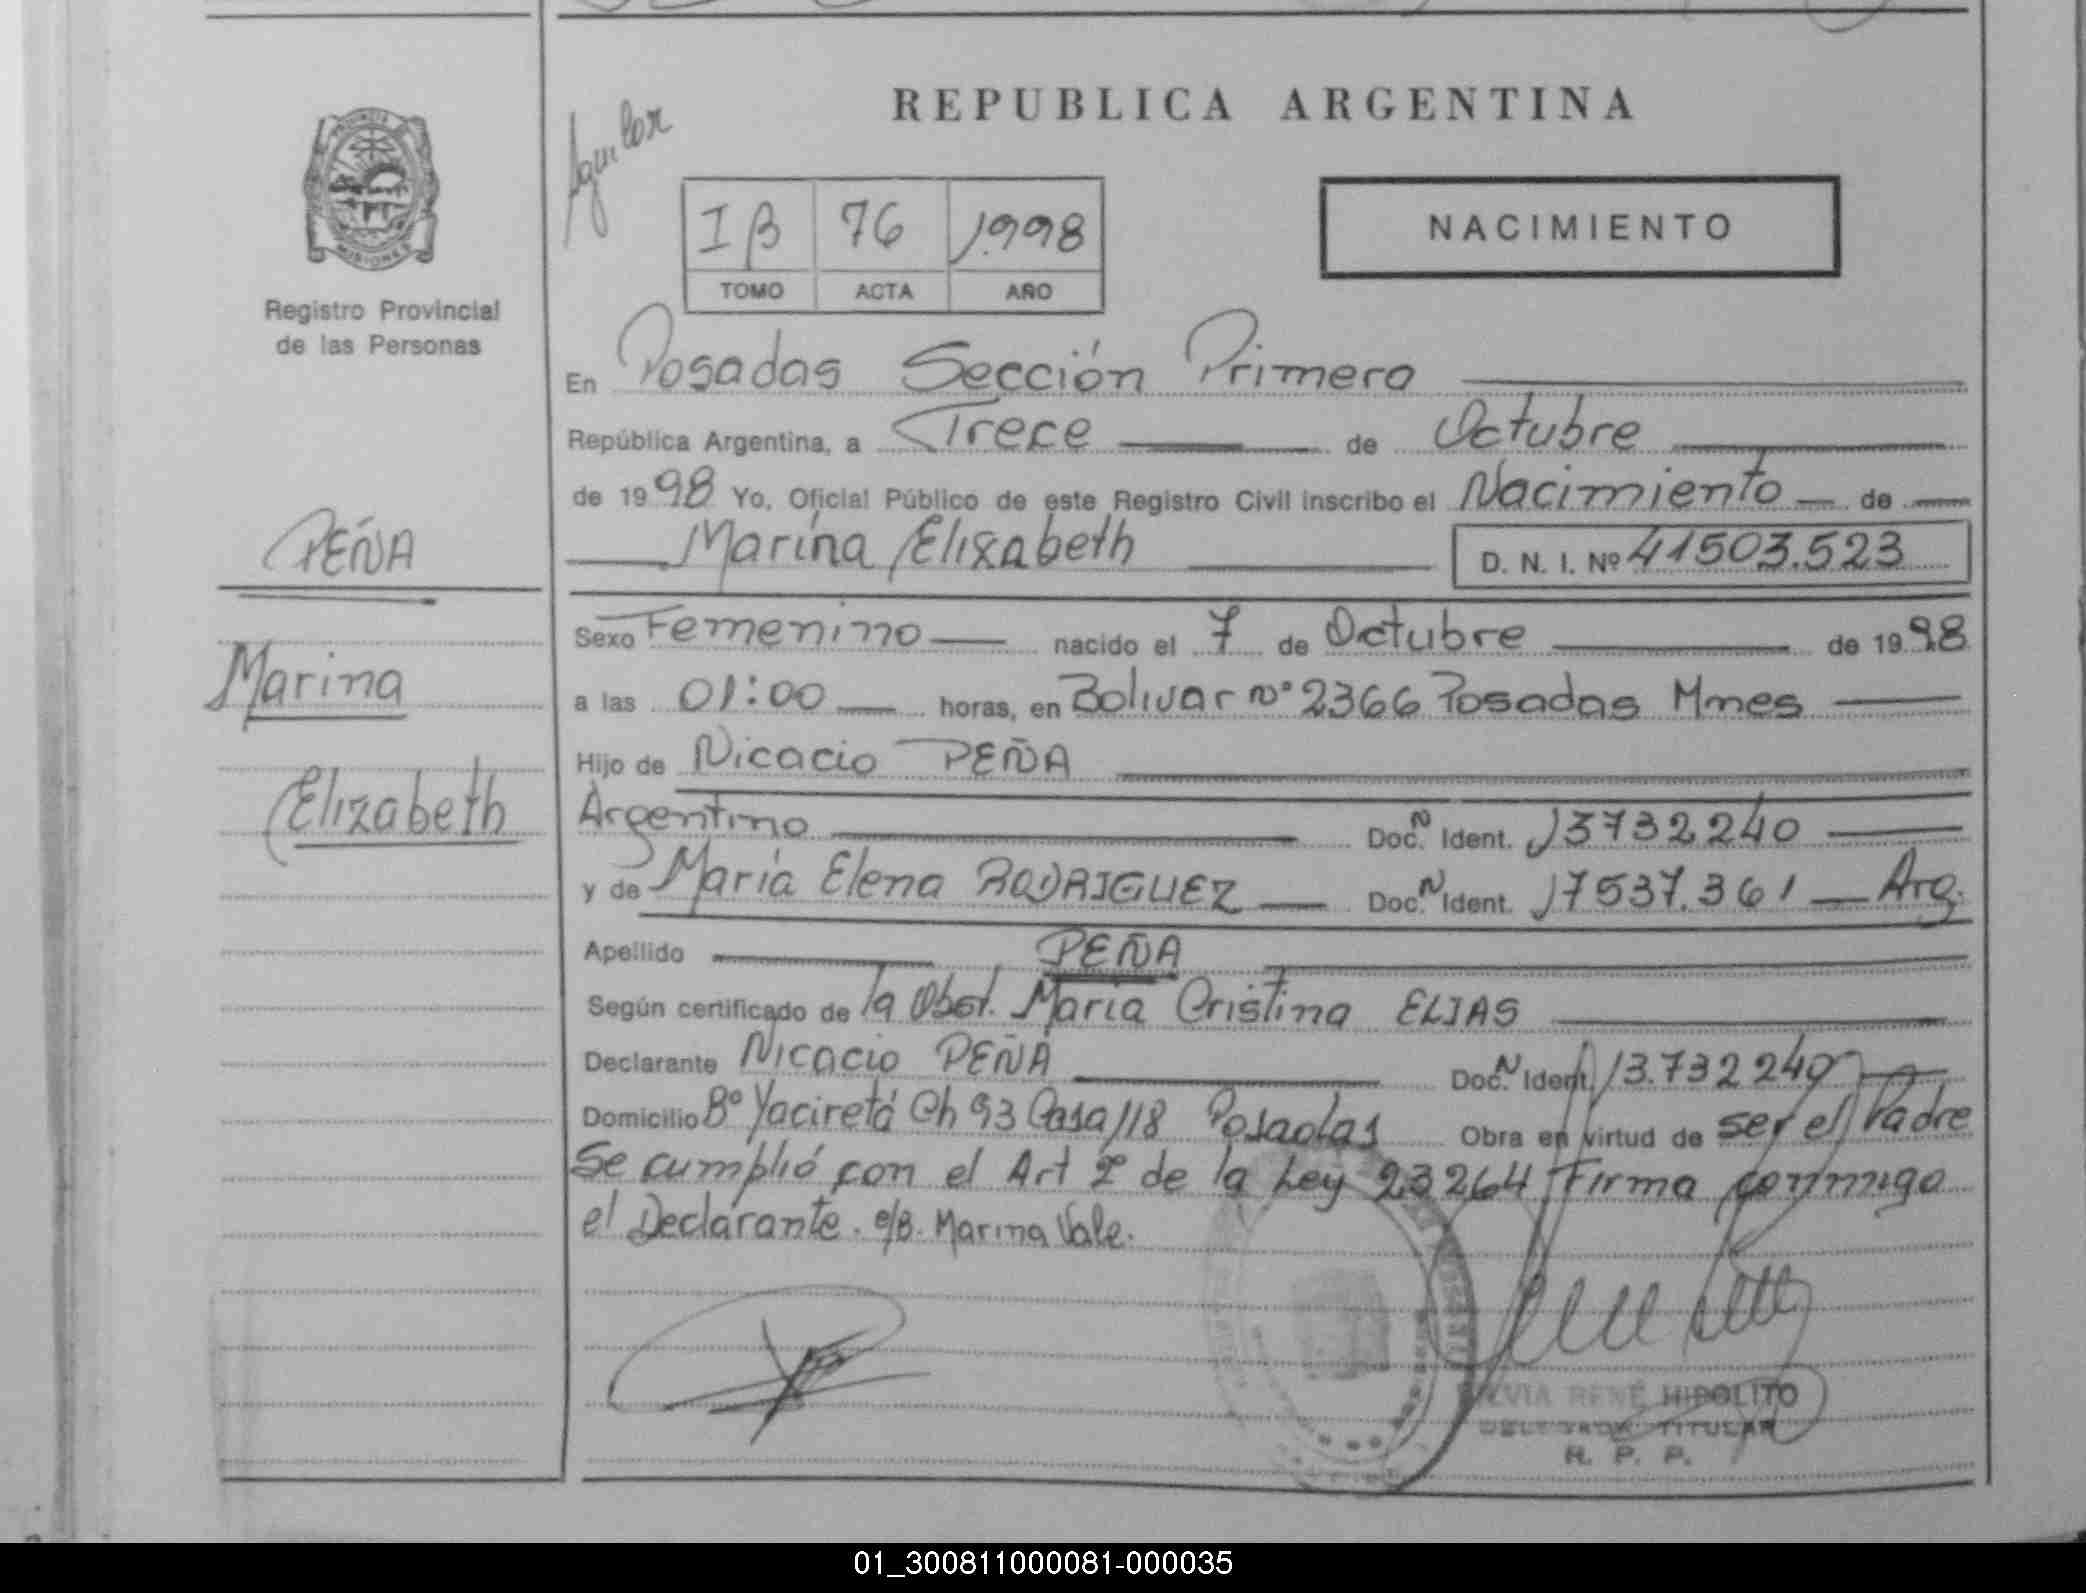 REPUBLICA ARGENTINA
Aguilar
PROVINCIA
MISIONES
Registro Provincial
de las Personas
I B 76 1.998
TOMO ACTA AÑO
NACIMIENTO
En Posadas Sección Primera
República Argentina, a Trece de Octubre
de 1998 Yo, Oficial Público de este Registro Civil inscribo el Nacimiento de
Marina Elizabeth D. N. I. Nº 41503.523
PEÑA
Marina
Elizabeth
Sexo Femenino nacido el 7 de Octubre de 1998
a las 01:00 horas, en Bolivar nº 2366 Posadas Mnes
Hijo de Nicacio PEÑA
Argentino Doc. N Ident. 13732240
y de María Elena RODRIGUEZ Doc. N Ident. 17537.361 Arg.
Apellido PEÑA
Según certificado de la Obst. María Cristina ELIAS
Declarante Nicacio PEÑA Doc. N Ident. 13.732240
Domicilio Bº Yaciretá Ch 93 Casa 118 Posadas Obra en virtud de ser el Padre
Se cumplió con el Art 2º de la Ley 23264 Firma conmigo
el Declarante. e/B. Marina Vale.
SILVIA RENÉ HIPOLITO
DELEGADA TITULAR
R. P. P.
01_300811000081-000035